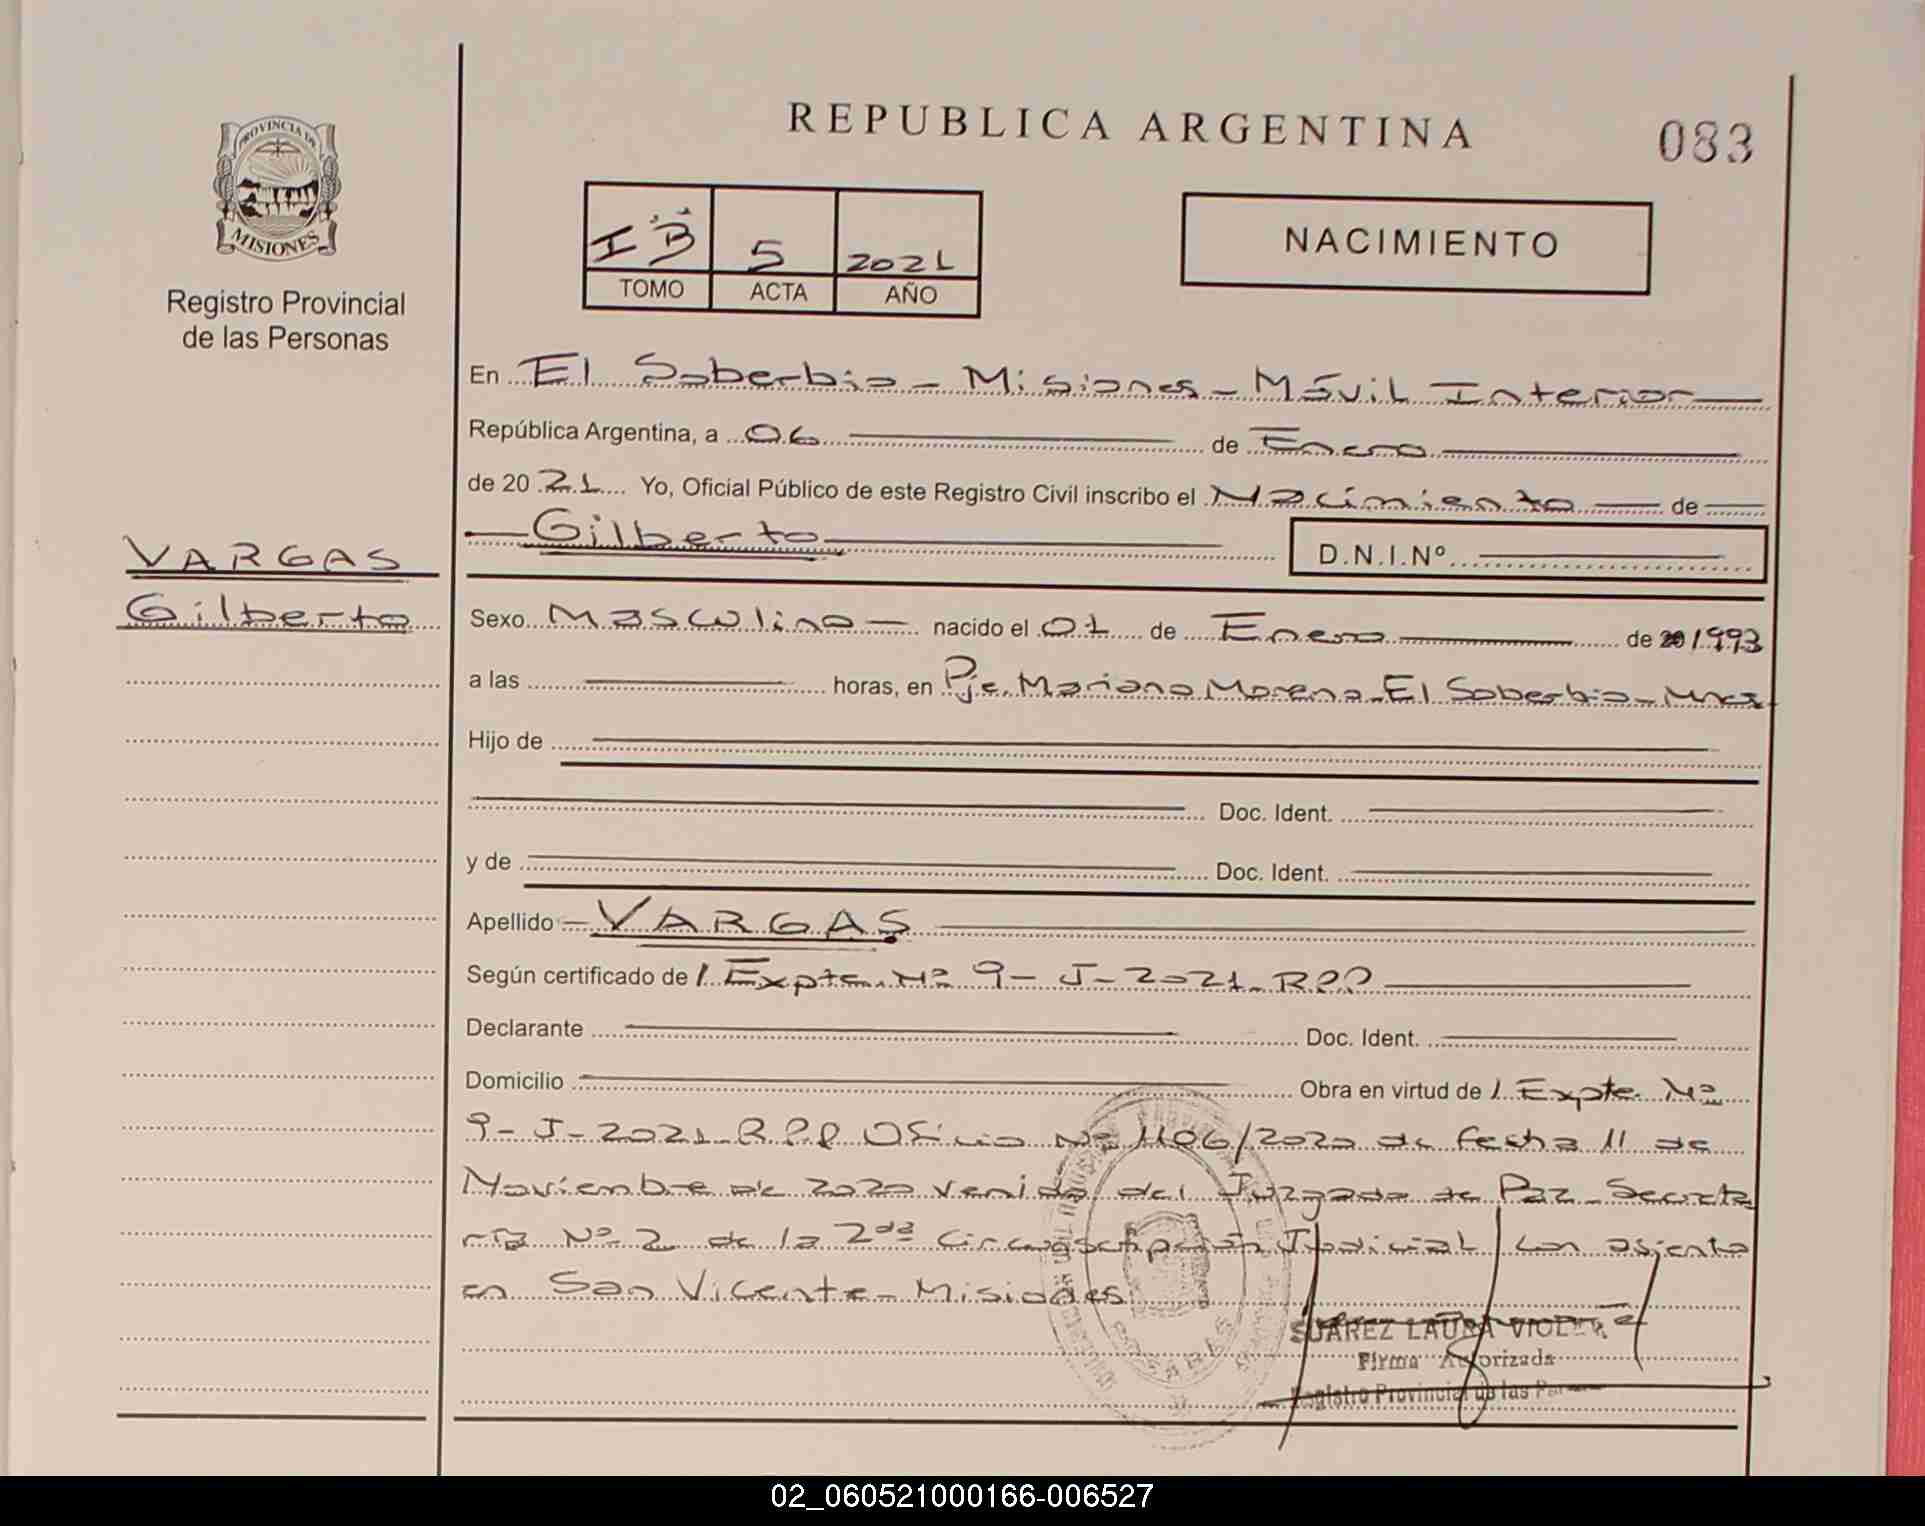 REPUBLICA ARGENTINA
083
PROVINCIA DE
MISIONES
Registro Provincial
de las Personas
I "B" 5 2021
TOMO ACTA AÑO
NACIMIENTO
En El Soberbio - Misiones - Móvil Interior
República Argentina, a 06 de Enero
de 2021 Yo, Oficial Público de este Registro Civil inscribo el Nacimiento de
Gilberto D.N.I.Nº
VARGAS
Gilberto
Sexo Masculino nacido el 01 de Enero de 20 1993
a las horas, en Pje. Mariano Moreno - El Soberbio - Mnes
Hijo de
Doc. Ident.
y de Doc. Ident.
Apellido VARGAS
Según certificado de / Expte. Nº 9 - J - 2021 - RPP
Declarante Doc. Ident.
Domicilio Obra en virtud de / Expte. Nº
9 - J - 2021 - RPP Oficio Nº 1106/2020 de fecha 11 de
Noviembre de 2020 venido del Juzgado de Paz Secreta
ría Nº 2 de la 2da Circunscripción Judicial con asiento
en San Vicente - Misiones
SUAREZ LAURA VIOLETA
Firma Autorizada
Registro Provincial de las Per
02_060521000166-006527